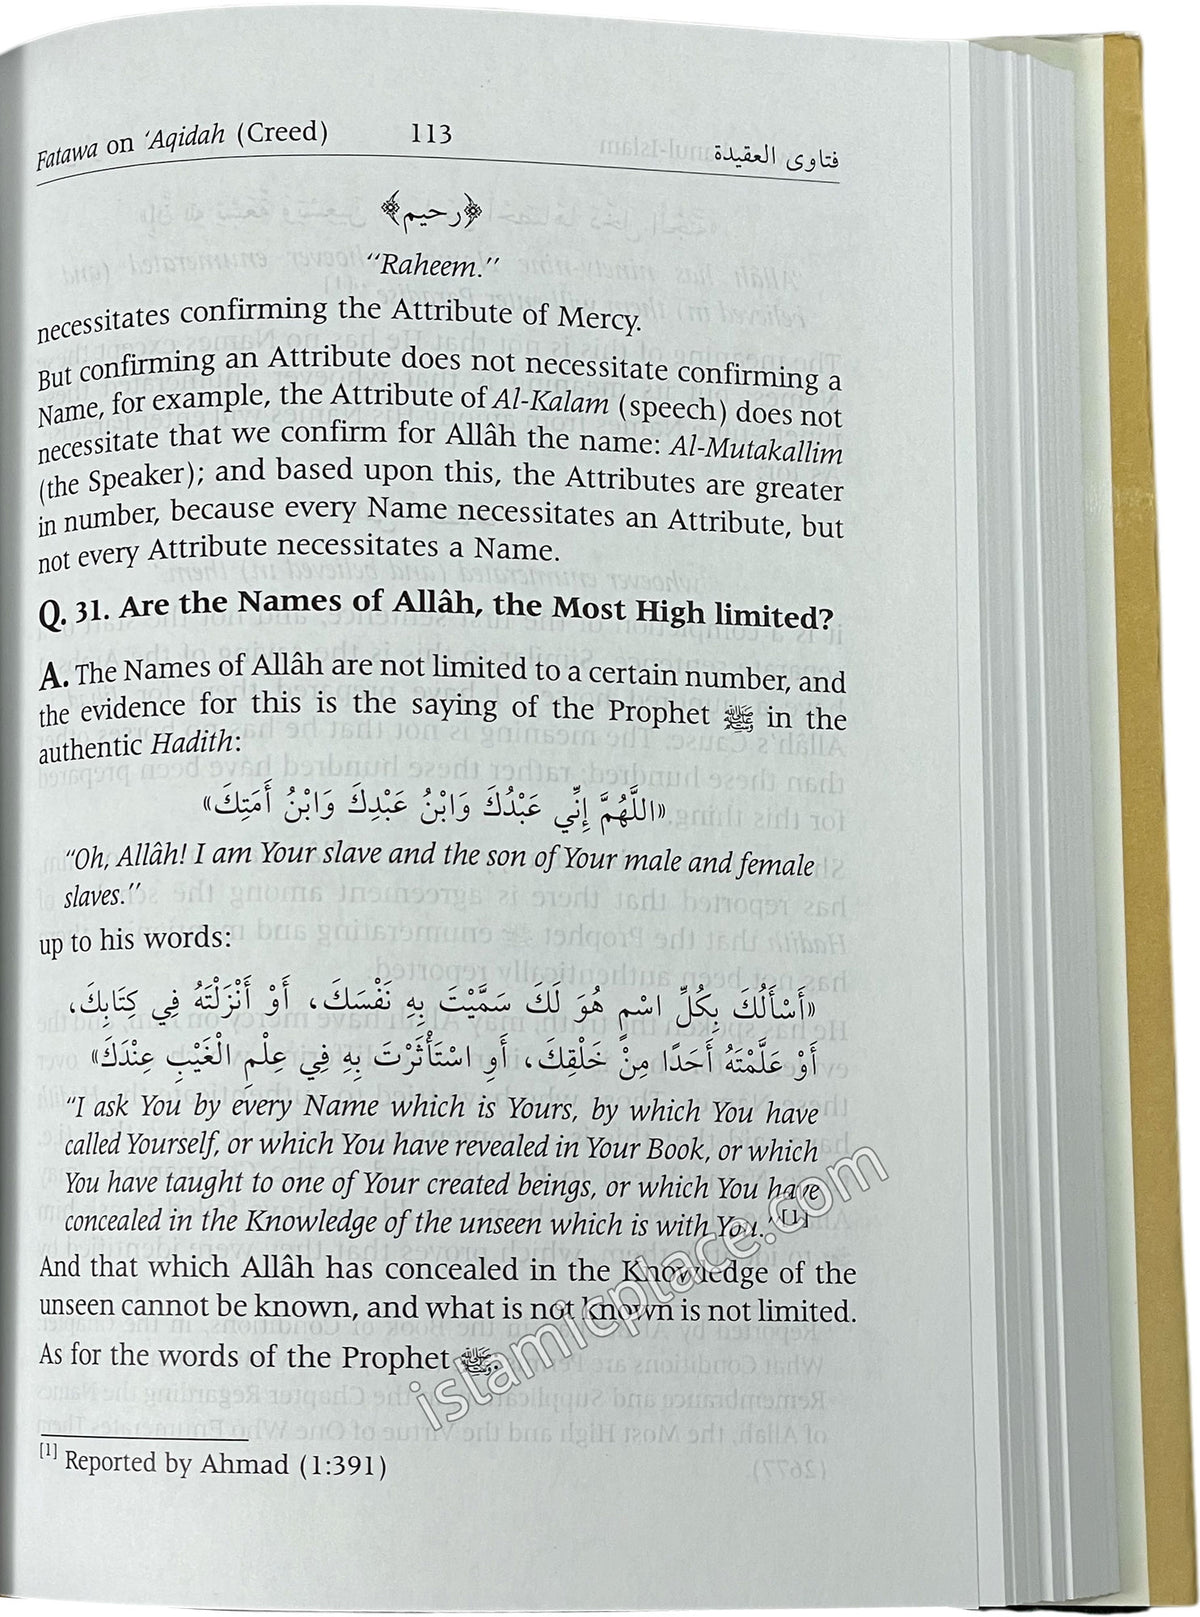 Fatawa on ‘Aqidah (Creed) 113 فتاوى العقيدة
﴿رحيم﴾
“Raheem.”
necessitates confirming the Attribute of Mercy.
But confirming an Attribute does not necessitate confirming a
Name, for example, the Attribute of Al-Kalam (speech) does not
necessitate that we confirm for Allâh the name: Al-Mutakallim
(the Speaker); and based upon this, the Attributes are greater
in number, because every Name necessitates an Attribute, but
not every Attribute necessitates a Name.
Q. 31. Are the Names of Allâh, the Most High limited?
A. The Names of Allâh are not limited to a certain number, and
the evidence for this is the saying of the Prophet ﷺ in the
authentic Hadith:
«اللَّهُمَّ إِنِّي عَبْدُكَ وَابْنُ عَبْدِكَ وَابْنُ أَمَتِكَ»
“Oh, Allâh! I am Your slave and the son of Your male and female
slaves.”
up to his words:
«أَسْأَلُكَ بِكُلِّ اسْمٍ هُوَ لَكَ سَمَّيْتَ بِهِ نَفْسَكَ، أَوْ أَنْزَلْتَهُ فِي كِتَابِكَ،
أَوْ عَلَّمْتَهُ أَحَدًا مِنْ خَلْقِكَ، أَوِ اسْتَأْثَرْتَ بِهِ فِي عِلْمِ الْغَيْبِ عِنْدَكَ»
“I ask You by every Name which is Yours, by which You have
called Yourself, or which You have revealed in Your Book, or which
You have taught to one of Your created beings, or which You have
concealed in the Knowledge of the unseen which is with You.”[1]
And that which Allâh has concealed in the Knowledge of the
unseen cannot be known, and what is not known is not limited.
As for the words of the Prophet ﷺ:
[1] Reported by Ahmad (1:391)
islamicplace.com